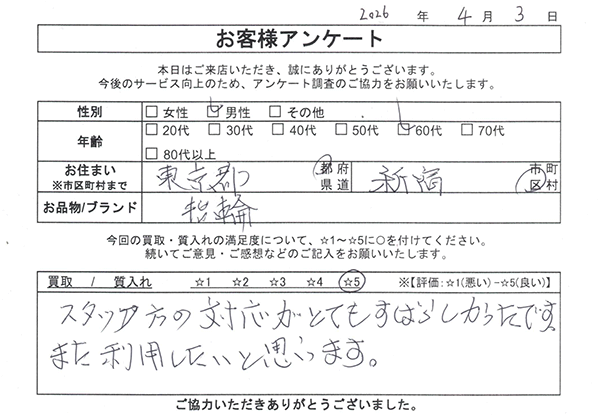 2026 年 4 月 3 日
お客様アンケート
本日はご来店いただき、誠にありがとうございます。
今後のサービス向上のため、アンケート調査のご協力をお願いいたします。
性別 □女性 □男性 □その他
年齢 □20代 □30代 □40代 □50代 □60代 □70代
□80代以上
お住まい ※市区町村まで 東京都 都府県道 新宿 市町区村
お品物/ブランド 指輪
今回の買取・質入れの満足度について、☆1～☆5に○を付けてください。
続いてご意見・ご感想などのご記入をお願いいたします。
買取 / 質入れ ☆1 ☆2 ☆3 ☆4 ☆5 ※【評価:☆1(悪い)-☆5(良い)】
スタッフ方の対応がとてもすばらしかったです。
また利用したいと思います。
ご協力いただきありがとうございました。